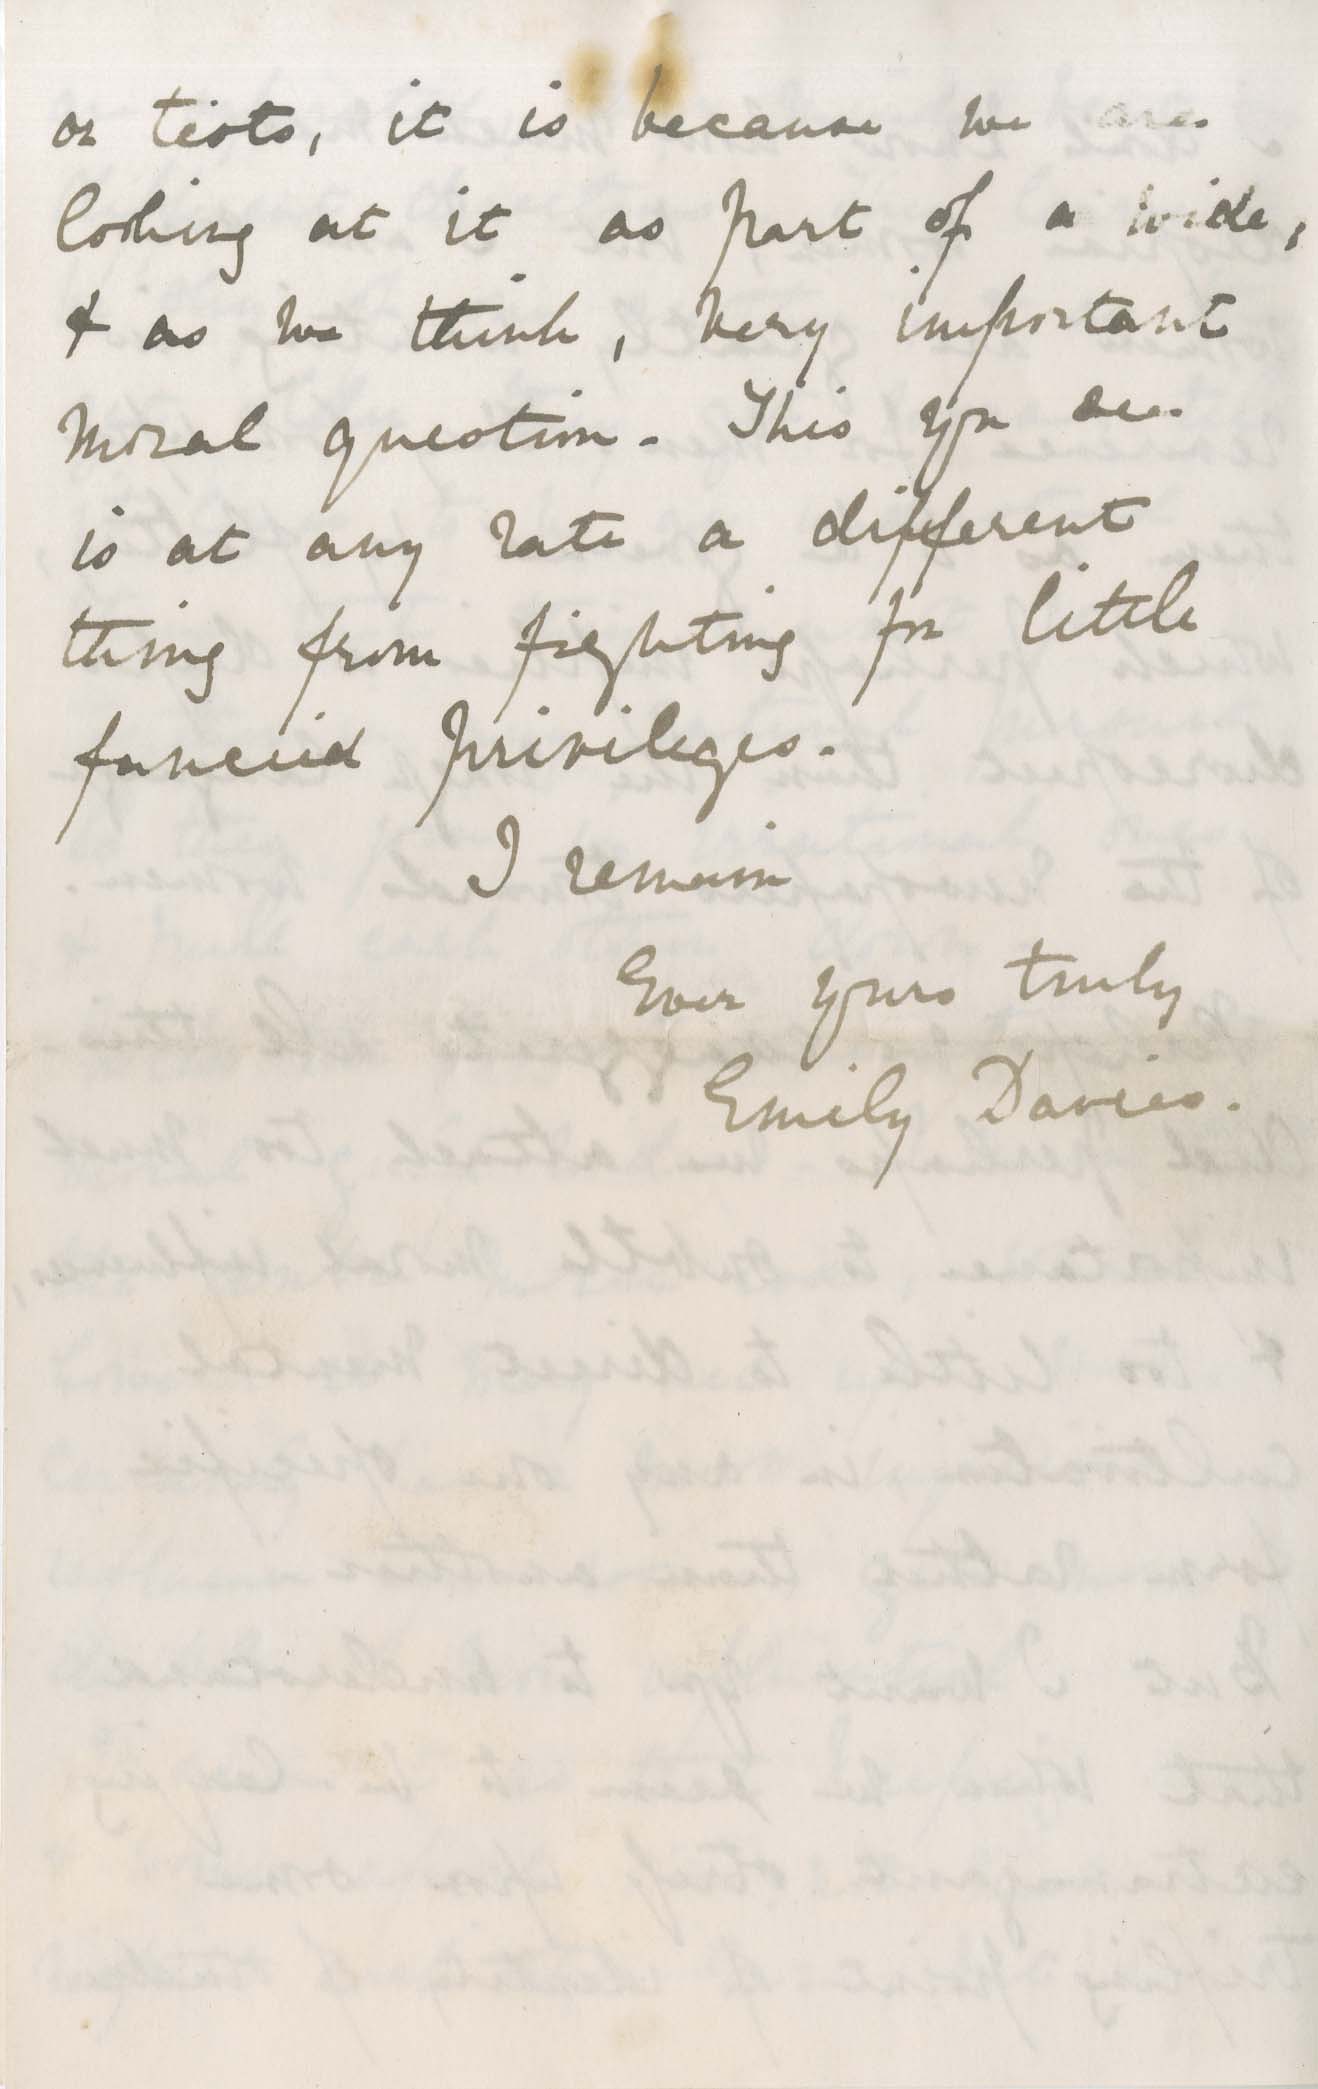 or tests, it is because we are
looking at it as part of a wide,
& as we think, very important
moral question. This you see
is at any rate a different
thing from fighting for little
fancied privileges.
I remain
Ever yours truly
Emily Davies.